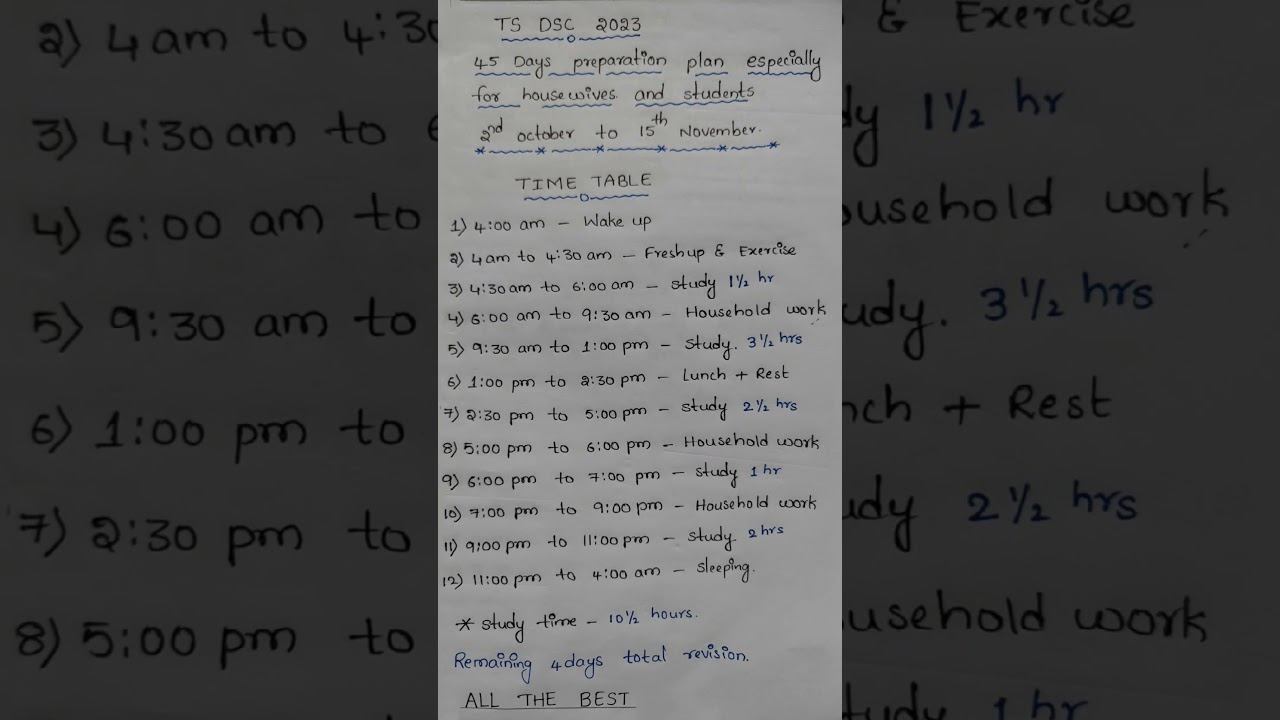 TS DSC 2023
45 Days preparation plan especially
for housewives and students
2nd october to 15th November.
TIME TABLE
1) 4:00 am - Wake up
2) 4am to 4:30 am - Freshup & Exercise
3) 4:30am to 6:00 am - study 1½ hr
4) 6:00 am to 9:30 am - Household work
5) 9:30 am to 1:00 pm - study. 3½ hrs
6) 1:00 pm to 2:30 pm - Lunch + Rest
7) 2:30 pm to 5:00 pm - study 2½ hrs
8) 5:00 pm to 6:00 pm - Household work
9) 6:00 pm to 7:00 pm - study 1 hr
10) 7:00 pm to 9:00 pm - Household work
11) 9:00 pm to 11:00 pm - study. 2 hrs
12) 11:00 pm to 4:00 am - sleeping.
* study time - 10½ hours.
Remaining 4 days total revision.
ALL THE BEST